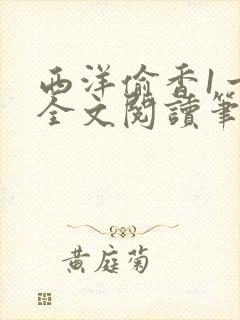 西洋偷香1
全文閱讀筆
黃庭菊